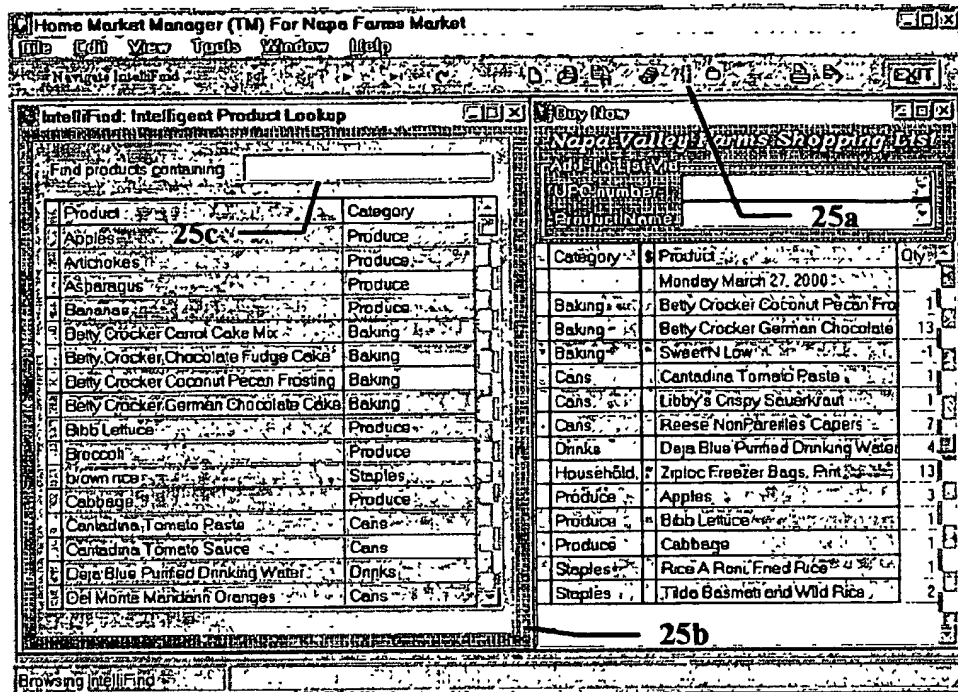 Home Market Manager (TM) For Napa Farms Market
File Edit View Tools Window Help
Navigate IntelliFind
EXIT
IntelliFind: Intelligent Product Lookup
Find products containing
25c
Product Category
Apples Produce
Artichokes Produce
Asparagus Produce
Bananas Produce
Betty Crocker Carrot Cake Mix Baking
Betty Crocker Chocolate Fudge Cake Baking
Betty Crocker Coconut Pecan Frosting Baking
Betty Crocker German Chocolate Cake Baking
Bibb Lettuce Produce
Broccoli Produce
brown rice Staples
Cabbage Produce
Cantadina Tomato Paste Cans
Cantadina Tomato Sauce Cans
Deja Blue Purified Drinking Water Drinks
Del Monte Mandarin Oranges Cans
Buy Now
Napa Valley Farms Shopping List
Add To List Via
UPC number
Product Name
25a
Category $ Product Qty
Monday March 27, 2000
Baking Betty Crocker Coconut Pecan Fro 1
Baking Betty Crocker German Chocolate 13
Baking Sweet'N Low 1
Cans Cantadina Tomato Paste 1
Cans Libby's Crispy Sauerkraut 1
Cans Reese NonPareilles Capers 7
Drinks Deja Blue Purified Drinking Water 4
Household Ziploc Freezer Bags, Pint 13
Produce Apples 3
Produce Bibb Lettuce 1
Produce Cabbage 1
Staples Rice A Roni, Fried Rice 1
Staples Tilda Basmati and Wild Rice 2
25b
Browsing IntelliFind